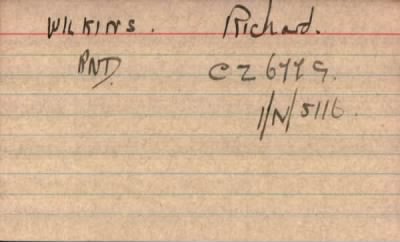 WILKINS. Richard.
RND. CZ 6779.
1/N/5116.